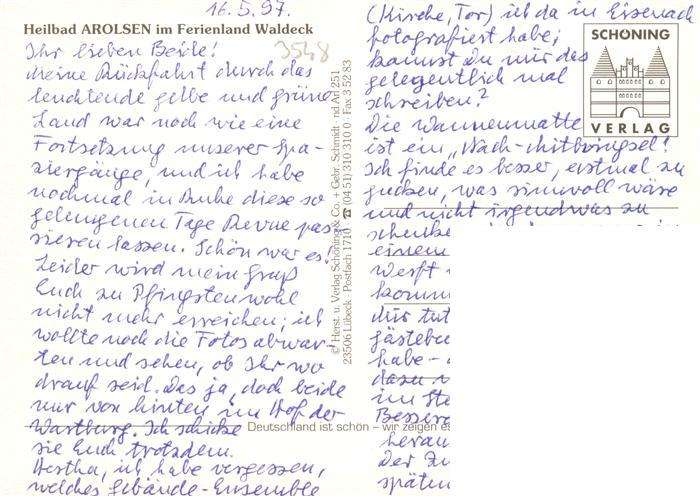 16.5.97.
Heilbad AROLSEN im Ferienland Waldeck
3548
Ihr lieben Beide!
Meine Rückfahrt durch das
leuchtende gelbe und grüne
Land war noch wie eine
Fortsetzung unserer Spa-
ziergänge, und ich habe
nochmal in Ruhe diese so
gelungenen Tage Revue pas-
sieren lassen. Schön war es!
Leider wird mein Gruß
Euch zu Pfingsten wohl
nicht mehr erreichen; ich
wollte noch die Fotos abwar-
ten und sehen, ob Ihr wo
drauf seid. Das ja, doch beide
nur von hinten im Hof der
Wartburg. Ich schicke
sie Euch trotzdem.
Hertha, ich habe vergessen,
welches Gebäude-Ensemble
© Herst. u. Verlag Schöning & Co. + Gebr. Schmidt · nd Ad 251
23506 Lübeck · Postfach 1710 · ☎ (04 51) 310 310 0 · Fax 3 52 83
Deutschland ist schön – wir zeigen es
(Kirche, Tor) ich da in Eisenach
fotografiert habe;
kannst Du mir das
gelegentlich mal
schreiben?
Die Wannenmatte
ist ein „Nach-mitbringsel!
Ich finde es besser, erstmal zu
gucken, was sinnvoll wäre
und nicht irgendwas zu
schenke
einem
werft
komm
dir tut
gästebu
habe -
dazu
im Ste
Bessere
heran
Der Zu
späten
SCHÖNING
VERLAG